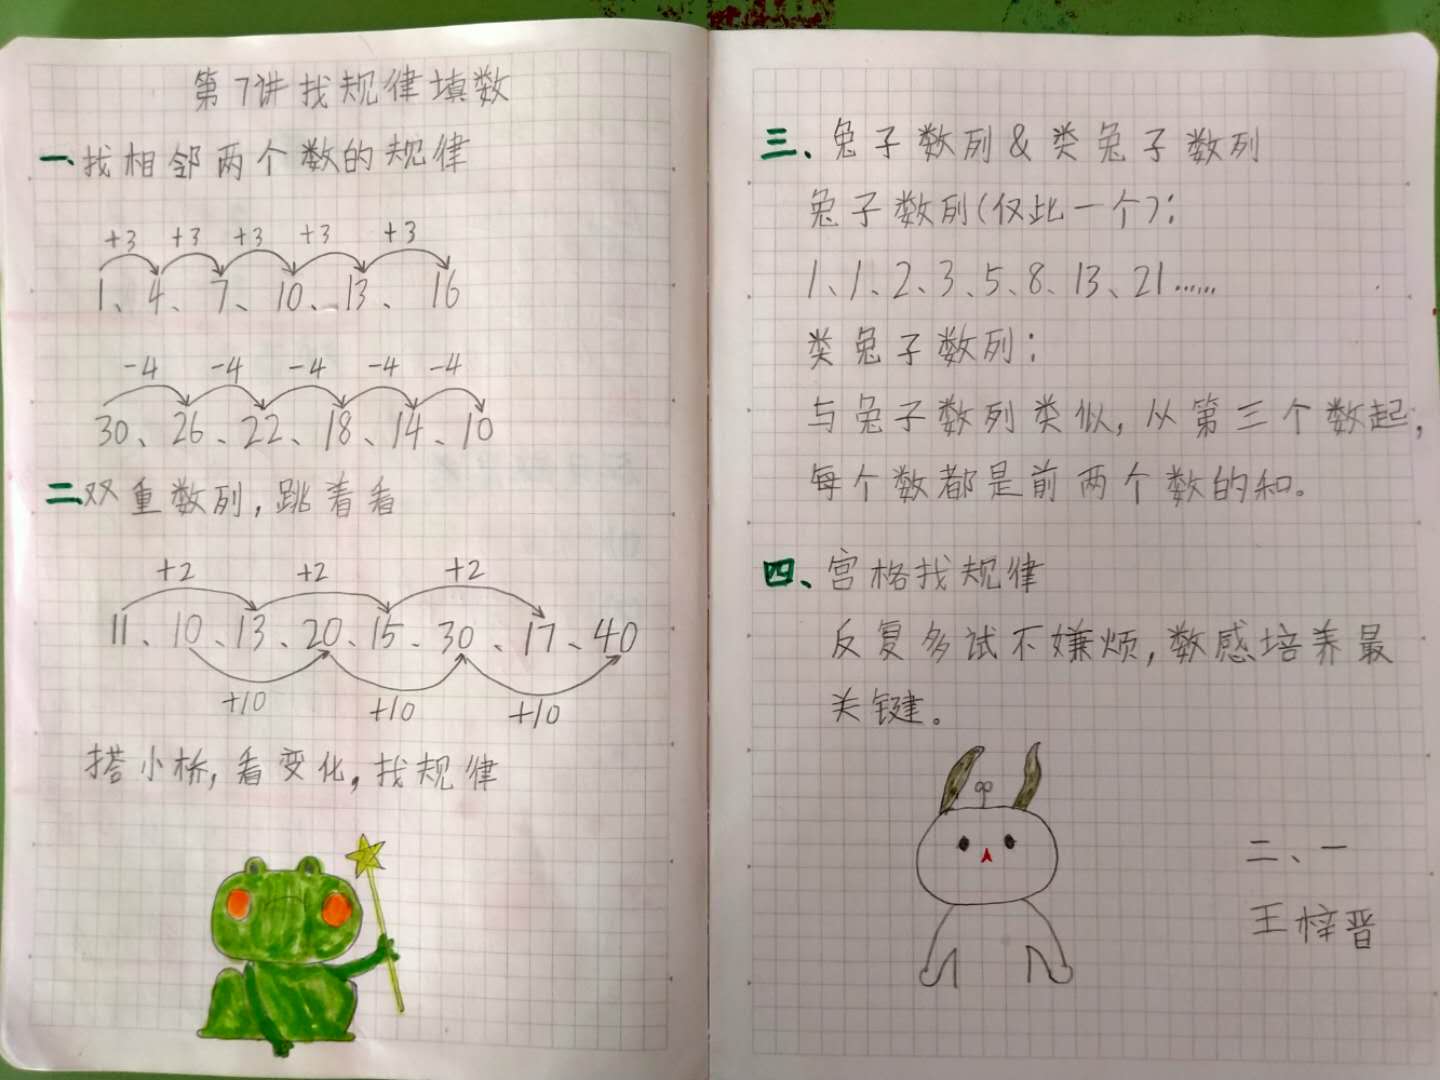 第7讲找规律填数
一、找相邻两个数的规律
+3 +3 +3 +3 +3
1、4、7、10、13、16
-4 -4 -4 -4 -4
30、26、22、18、14、10
二、双重数列,跳着看
+2 +2 +2
11、10、13、20、15、30、17、40
+10 +10 +10
搭小桥,看变化,找规律
三、兔子数列&类兔子数列
兔子数列(仅此一个):
1、1、2、3、5、8、13、21……
类兔子数列:
与兔子数列类似,从第三个数起,
每个数都是前两个数的和。
四、宫格找规律
反复多试不嫌烦,数感培养最
关键。
二、一
王梓晋